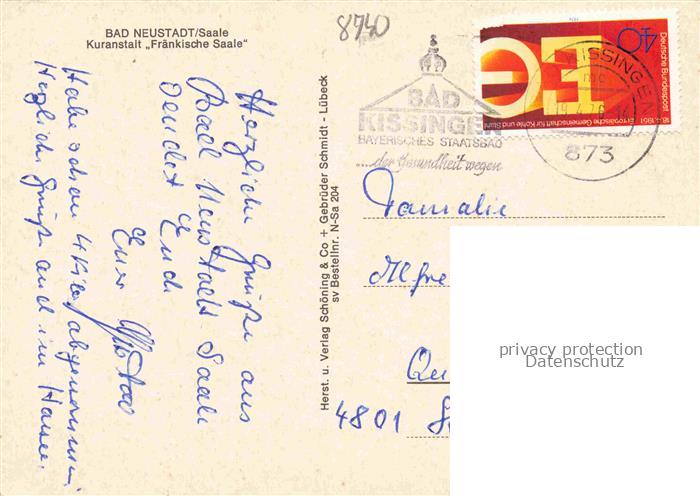 BAD NEUSTADT/Saale
Kuranstalt „Fränkische Saale"
8740
Herzliche Grüße aus
Bad Neustadt Saale
sendet Euch
Euer
Habe schon 4 Kilo abgenommen,
Herzliche Grüße auch im Hause.
Herst. u. Verlag Schöning & Co + Gebrüder Schmidt - Lübeck
sv Bestellnr. N-Sa 204
BAD
KISSINGEN
BAYERISCHES STAATSBAD
...der Gesundheit wegen
KISSINGEN
mc
873
40
Deutsche Bundespost
Europäische Gemeinschaft für Kohle und Stahl
18.4.1951
Familie
Alfre
Qu
4801
privacy protection
Datenschutz